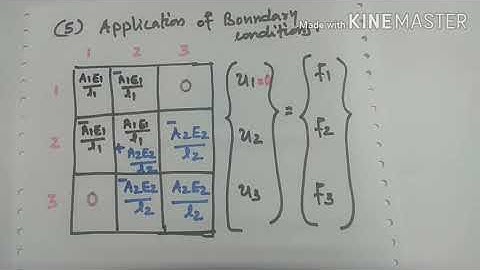 (5) Application of Boundary
conditions.
Made with KINEMASTER
1 2 3
1 A1E1/l1 -A1E1/l1 0 u1=0 f1
2 -A1E1/l1 A1E1/l1 + A2E2/l2 -A2E2/l2 u2 = f2
3 0 -A2E2/l2 A2E2/l2 u3 f3